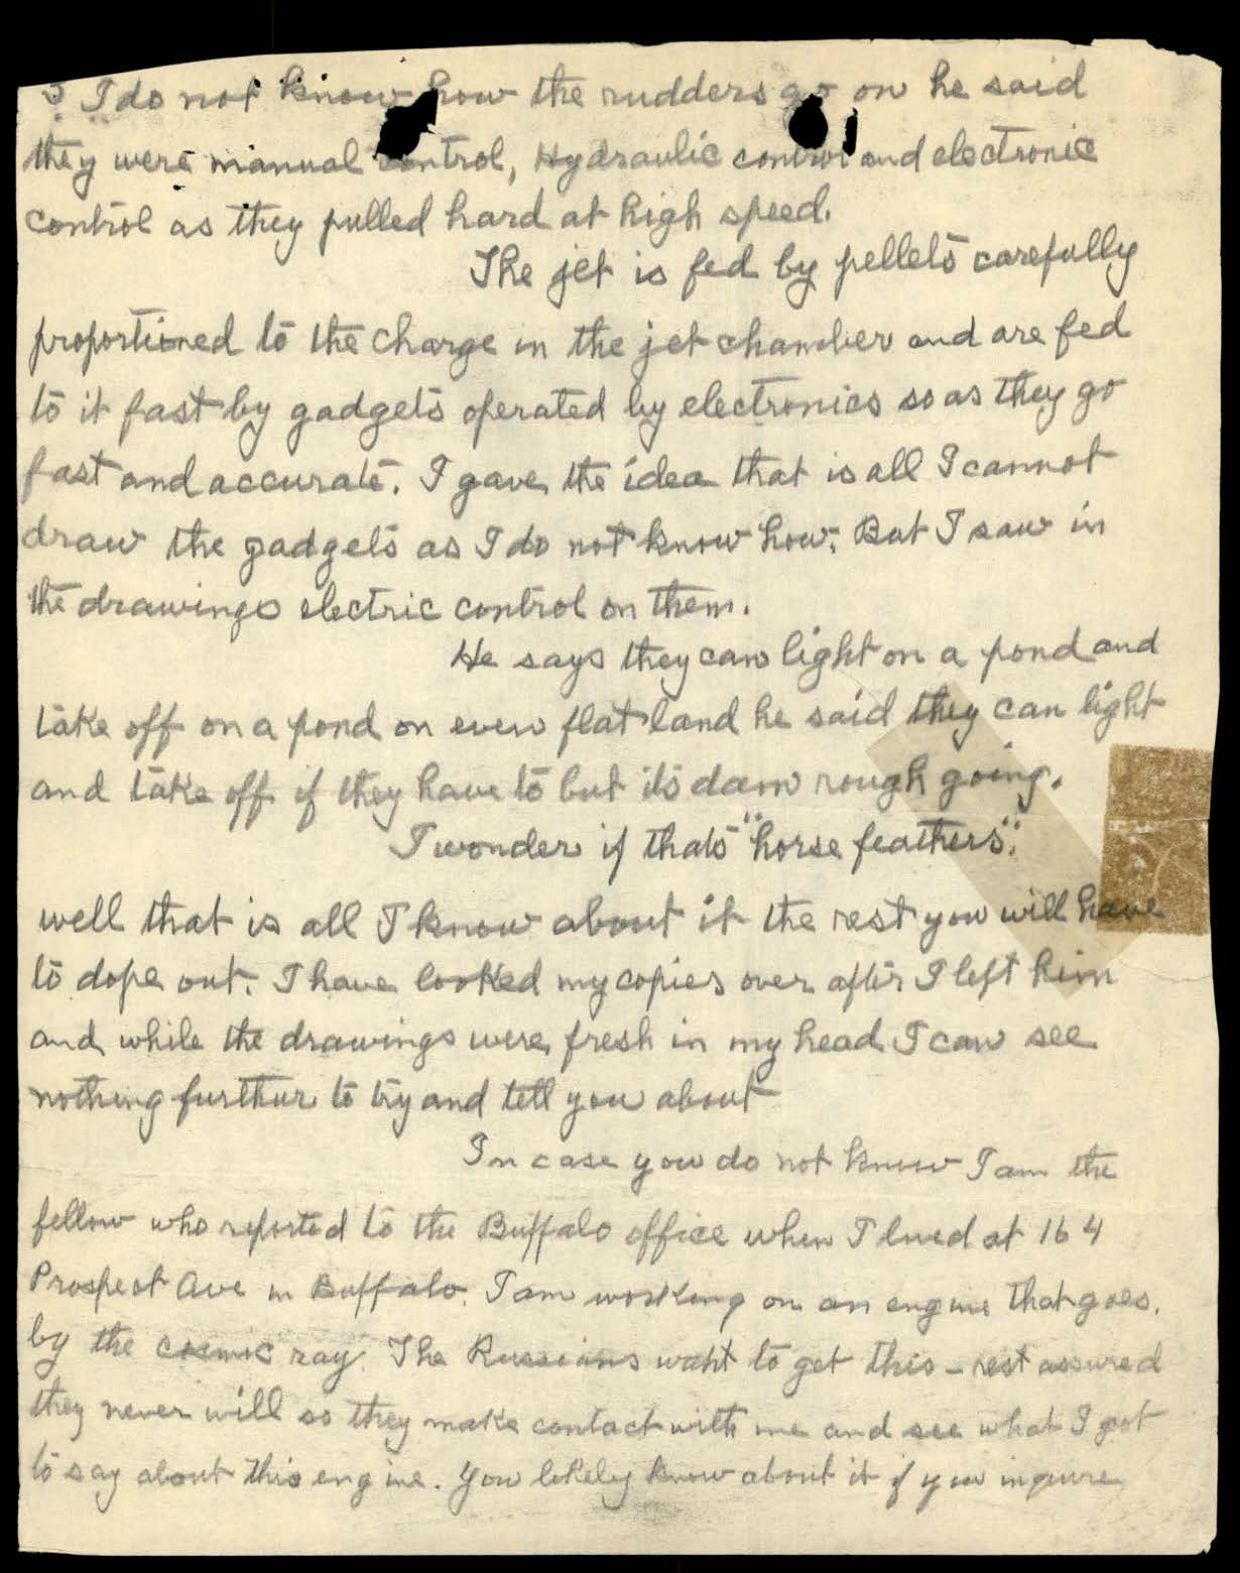 I do not know how the rudders go on he said
they were manual control, Hydraulic control and electronic
control as they pulled hard at high speed.
The jet is fed by pellets carefully
proportioned to the charge in the jet chamber and are fed
to it fast by gadgets operated by electronics so as they go
fast and accurate. I gave the idea that is all I cannot
draw the gadgets as I do not know how. But I saw in
the drawings electric control on them.
He says they can light on a pond and
take off on a pond on even flat land he said they can light
and take off if they have to but its dam rough going.
I wonder if thats "horse feathers".
well that is all I know about it the rest you will have
to dope out. I have looked my copies over after I left him
and while the drawings were fresh in my head I can see
nothing furthur to try and tell you about
In case you do not know I am the
fellow who reported to the Buffalo office when I lived at 164
Prospect Ave in Buffalo. I am working on an engine that goes.
by the cosmic ray. The Russians want to get this - rest assured
they never will so they make contact with me and see what I got
to say about this engine. You likely know about it if you inquire